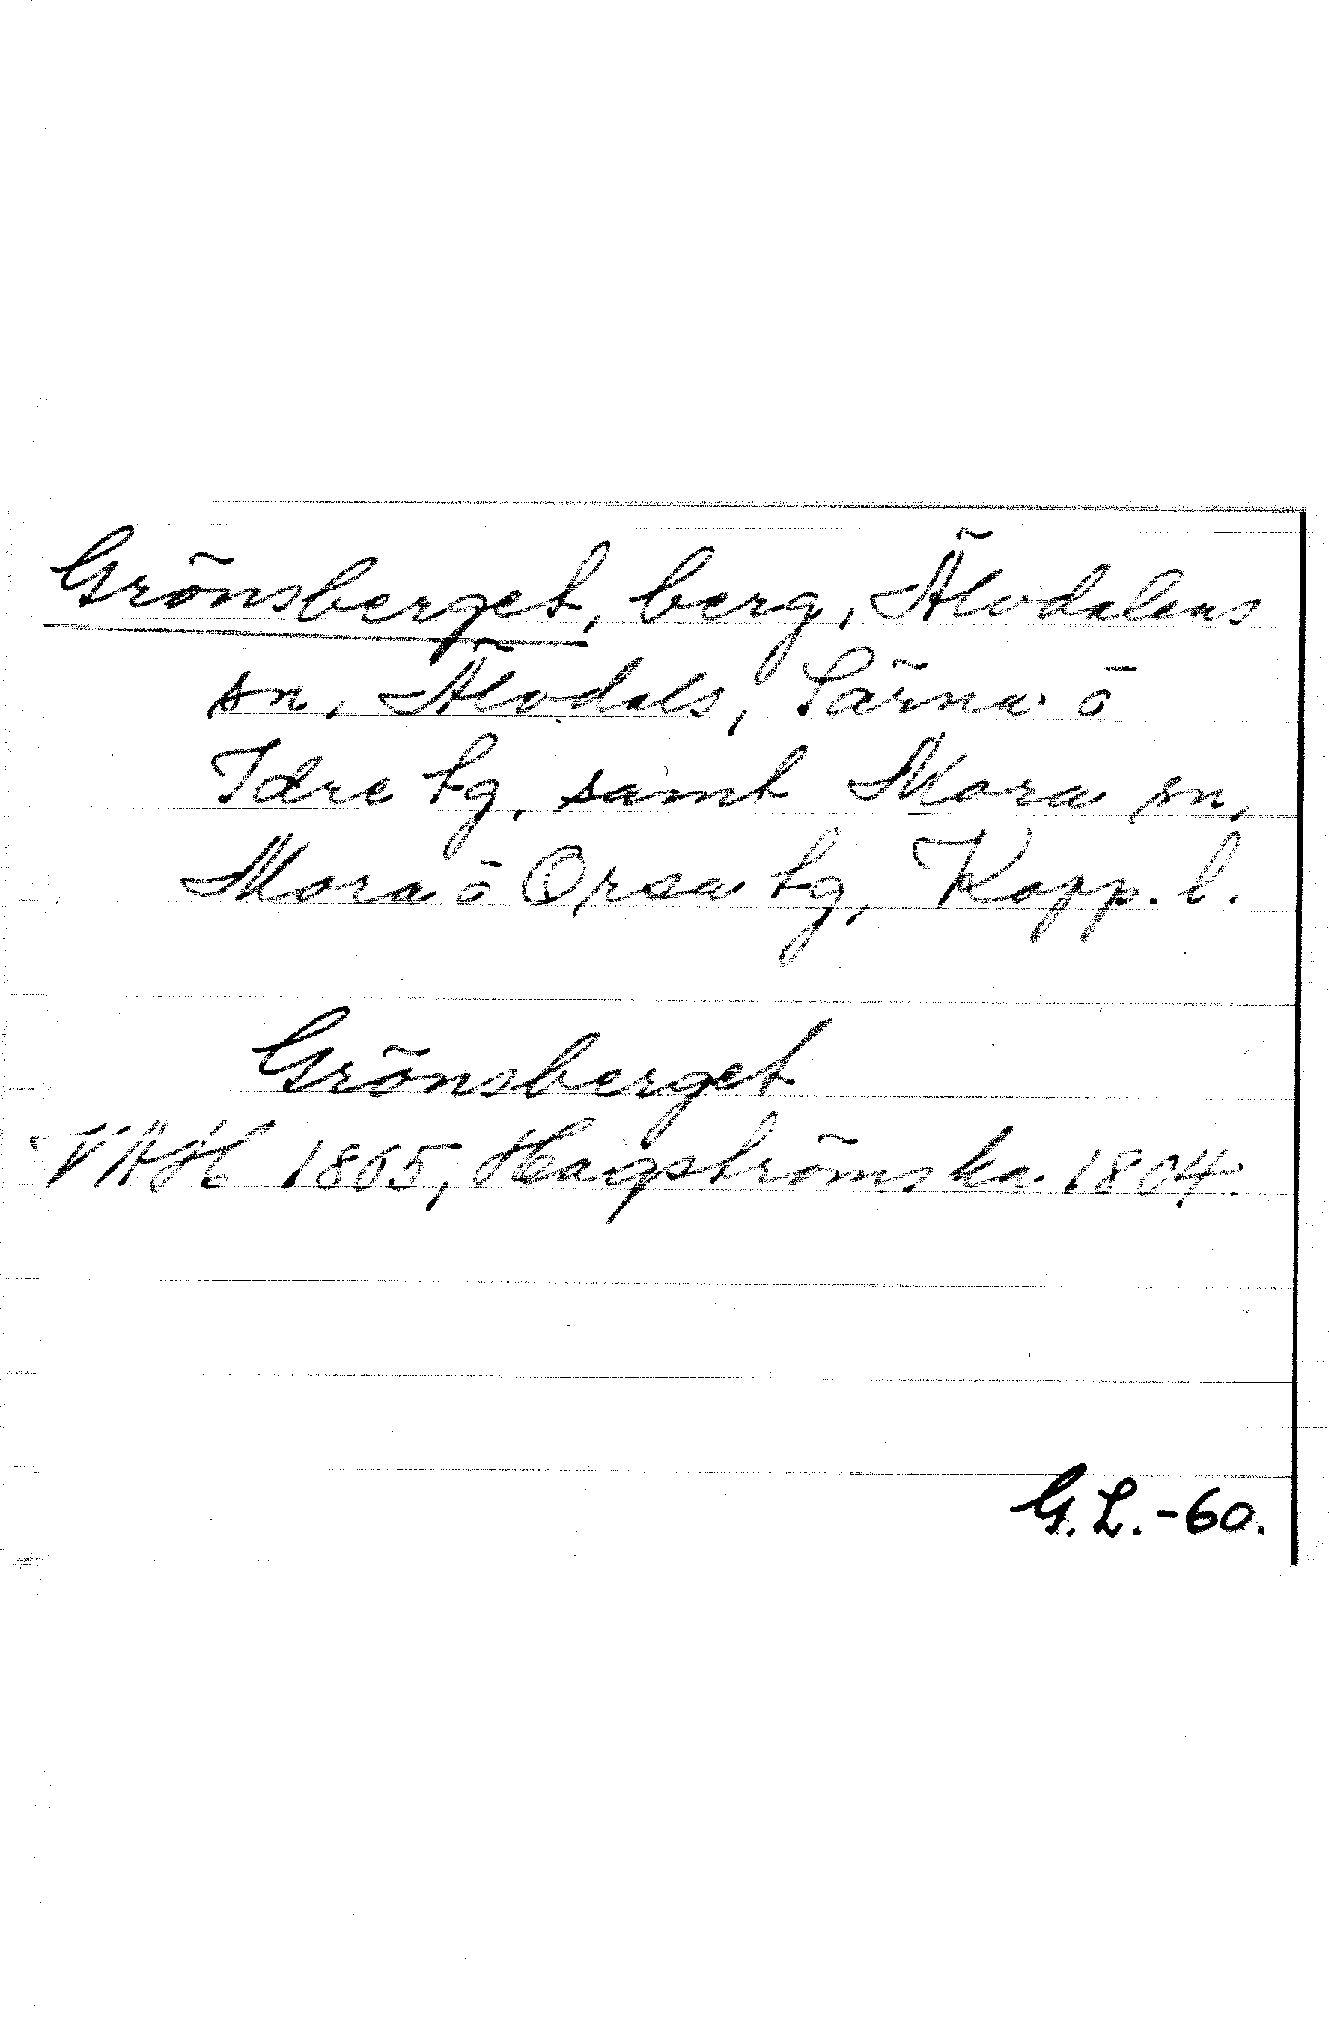 Grönsberget, berg, Älvdalens
sn, Älvdals, Särna o
Idre tg, samt Mora sn,
Mora o Orsa tg, Kopp. l.
Grönsberget
1865, Hagströmska 1804.
G.L.-60.